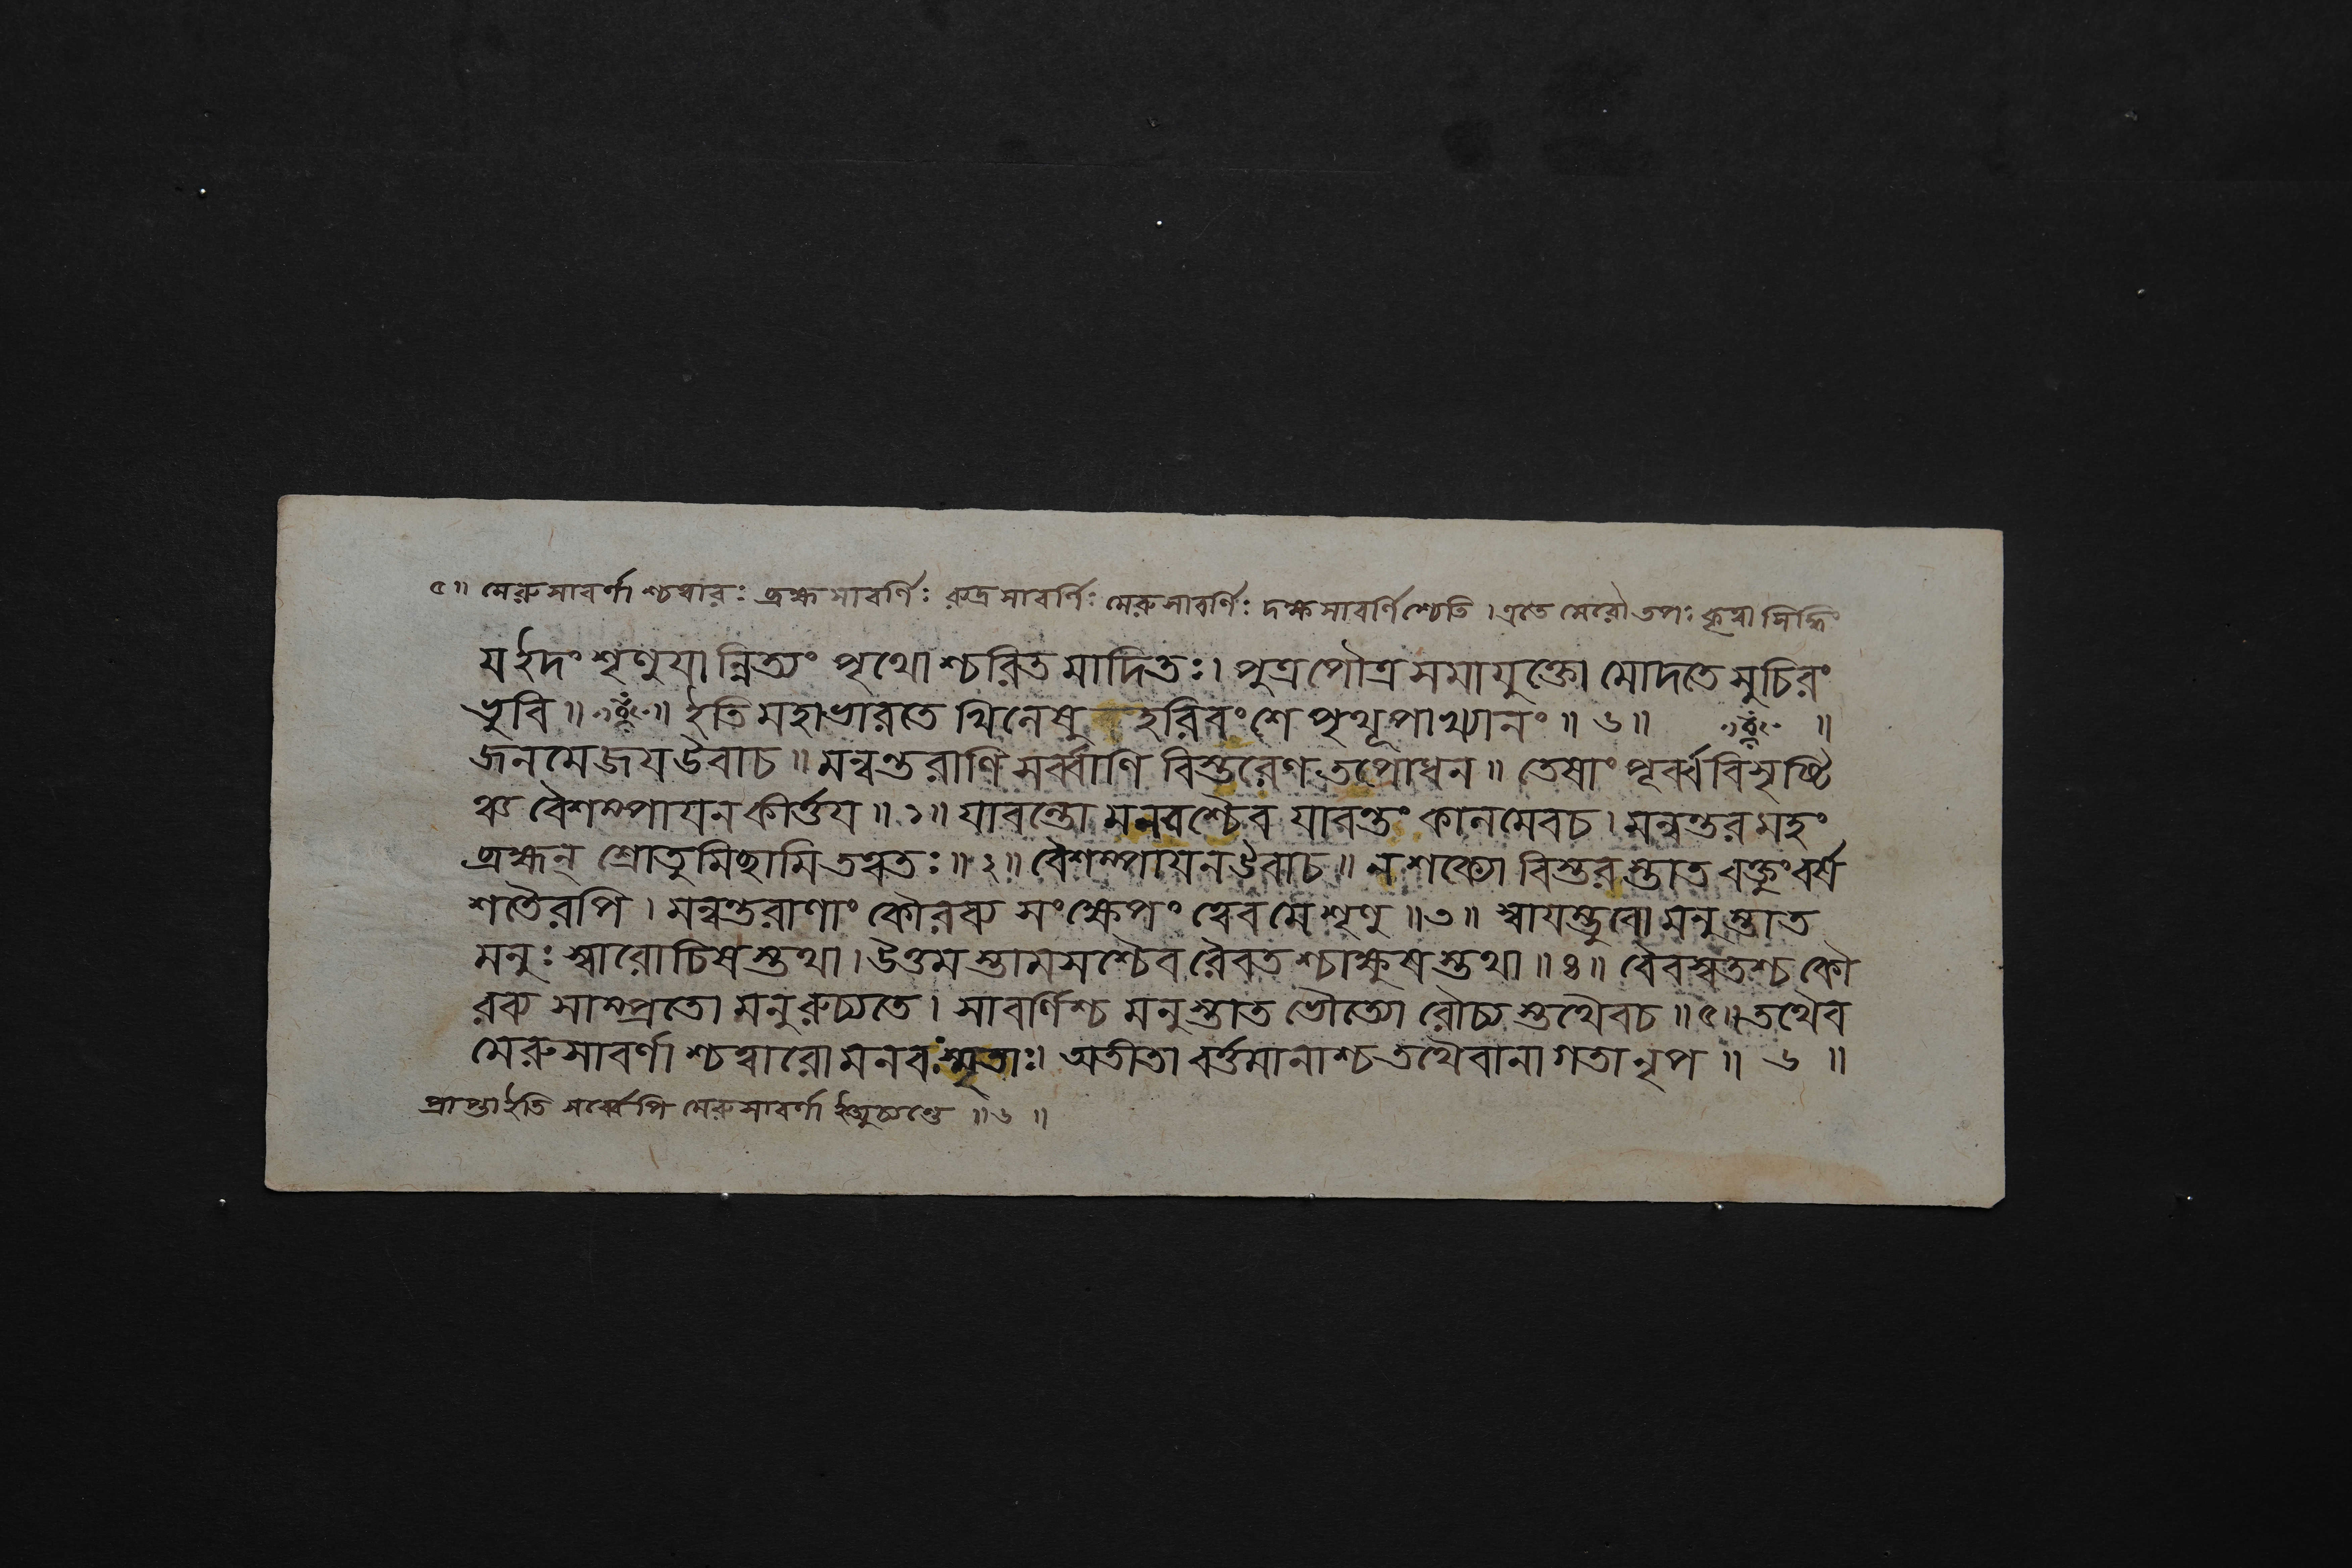 ৫॥ মেরুসাবর্ণাশ্চত্বারঃ ব্রহ্মসাবর্ণিঃ রুদ্রসাবর্ণিঃ মেরুসাবর্ণিঃ দক্ষসাবর্ণিশ্চেতি । এতে মেরৌ তপঃ কৃত্বা সিদ্ধিং
য ইদং শৃণুযান্নিত্যং পৃথোশ্চরিতমাদিতঃ। পুত্রপৌত্রসমাযুক্তো মোদতে সুচিরং
ভুবি ॥ ॥ ইতি মহাভারতে খিলেষু হরিবংশে পৃথূপাখ্যানং ॥ ৬॥ ॥
জনমেজয উবাচ ॥ মন্বন্তরাণি সর্ব্বাণি বিস্তরেণ তপোধন ॥ তেষাং পূর্ব্ববিসৃষ্টি
ঞ্চ বৈশম্পাযন কীর্ত্তয ॥ ১॥ যাবন্তো মনবশ্চৈব যাবন্তং কালমেবচ । মন্বন্তরমহং
ব্রহ্মন্ শ্রোতুমিছামি তত্বতঃ ॥ ২॥ বৈশম্পাযন উবাচ ॥ ন শক্যো বিস্তরস্তাত বক্তুং বর্ষ
শতৈরপি । মন্বন্তরাণাং কৌরব্য সংক্ষেপং ত্বেব মে শৃণু ॥৩॥ স্বাযম্ভুবো মনুস্তাত
মনুঃ স্বারোচিষস্তথা । উত্তমস্তামসশ্চৈব রৈবতশ্চাক্ষুষস্তথা ॥ ৪॥ বৈবস্বতশ্চ কৌ
রব্য সাম্প্রতো মনুরুচ্যতে । সাবর্ণিশ্চ মনুস্তাত ভৌত্যো রৌচ্যস্তথৈবচ ॥৫॥ তথৈব
মেরুসাবর্ণাশ্চত্বারো মনবঃ স্মৃতাঃ। অতীতা বর্ত্তমানাশ্চ তথৈবানাগতা নৃপ ॥ ৬ ॥
প্রাপ্তা ইতি সর্ব্বেপি মেরুসাবর্ণা ॥৬ ॥